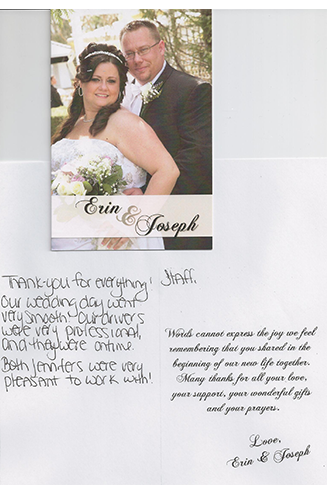 Erin & Joseph
Thank-you for everything!
Our wedding day went
very smooth - Our drivers
were very professional,
and they were ontime.
Both Jennifers were very
pleasant to work with!
Staff,
Words cannot express the joy we feel
remembering that you shared in the
beginning of our new life together.
Many thanks for all your love,
your support, your wonderful gifts
and your prayers.
Love,
Erin & Joseph